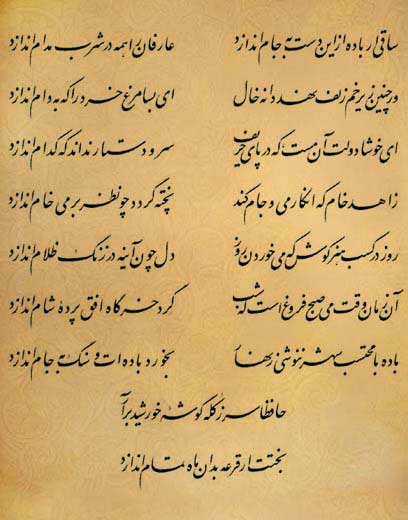 ساقی ار باده از این دست به جام اندازد عارفان را همه در شرب مدام اندازد
ور چنین زیر خم زلف نهد دانه خال ای بسا مرغ خرد را که به دام اندازد
ای خوشا دولت آن مست که در پای حریف سر و دستار نداند که کدام اندازد
زاهد خام که انکار می و جام کند پخته گردد چو نظر بر می خام اندازد
روز در کسب هنر کوش که می خوردن روز دل چون آینه در زنگ ظلام اندازد
آن زمان وقت می صبح فروغ است که شب گرد خرگاه افق پردهٔ شام اندازد
باده با محتسب شهر ننوشی زنهار بخورد باده ات و سنگ به جام اندازد
حافظا سر ز کله گوشهٔ خورشید برآر
بختت ار قرعه بدان ماه تمام اندازد